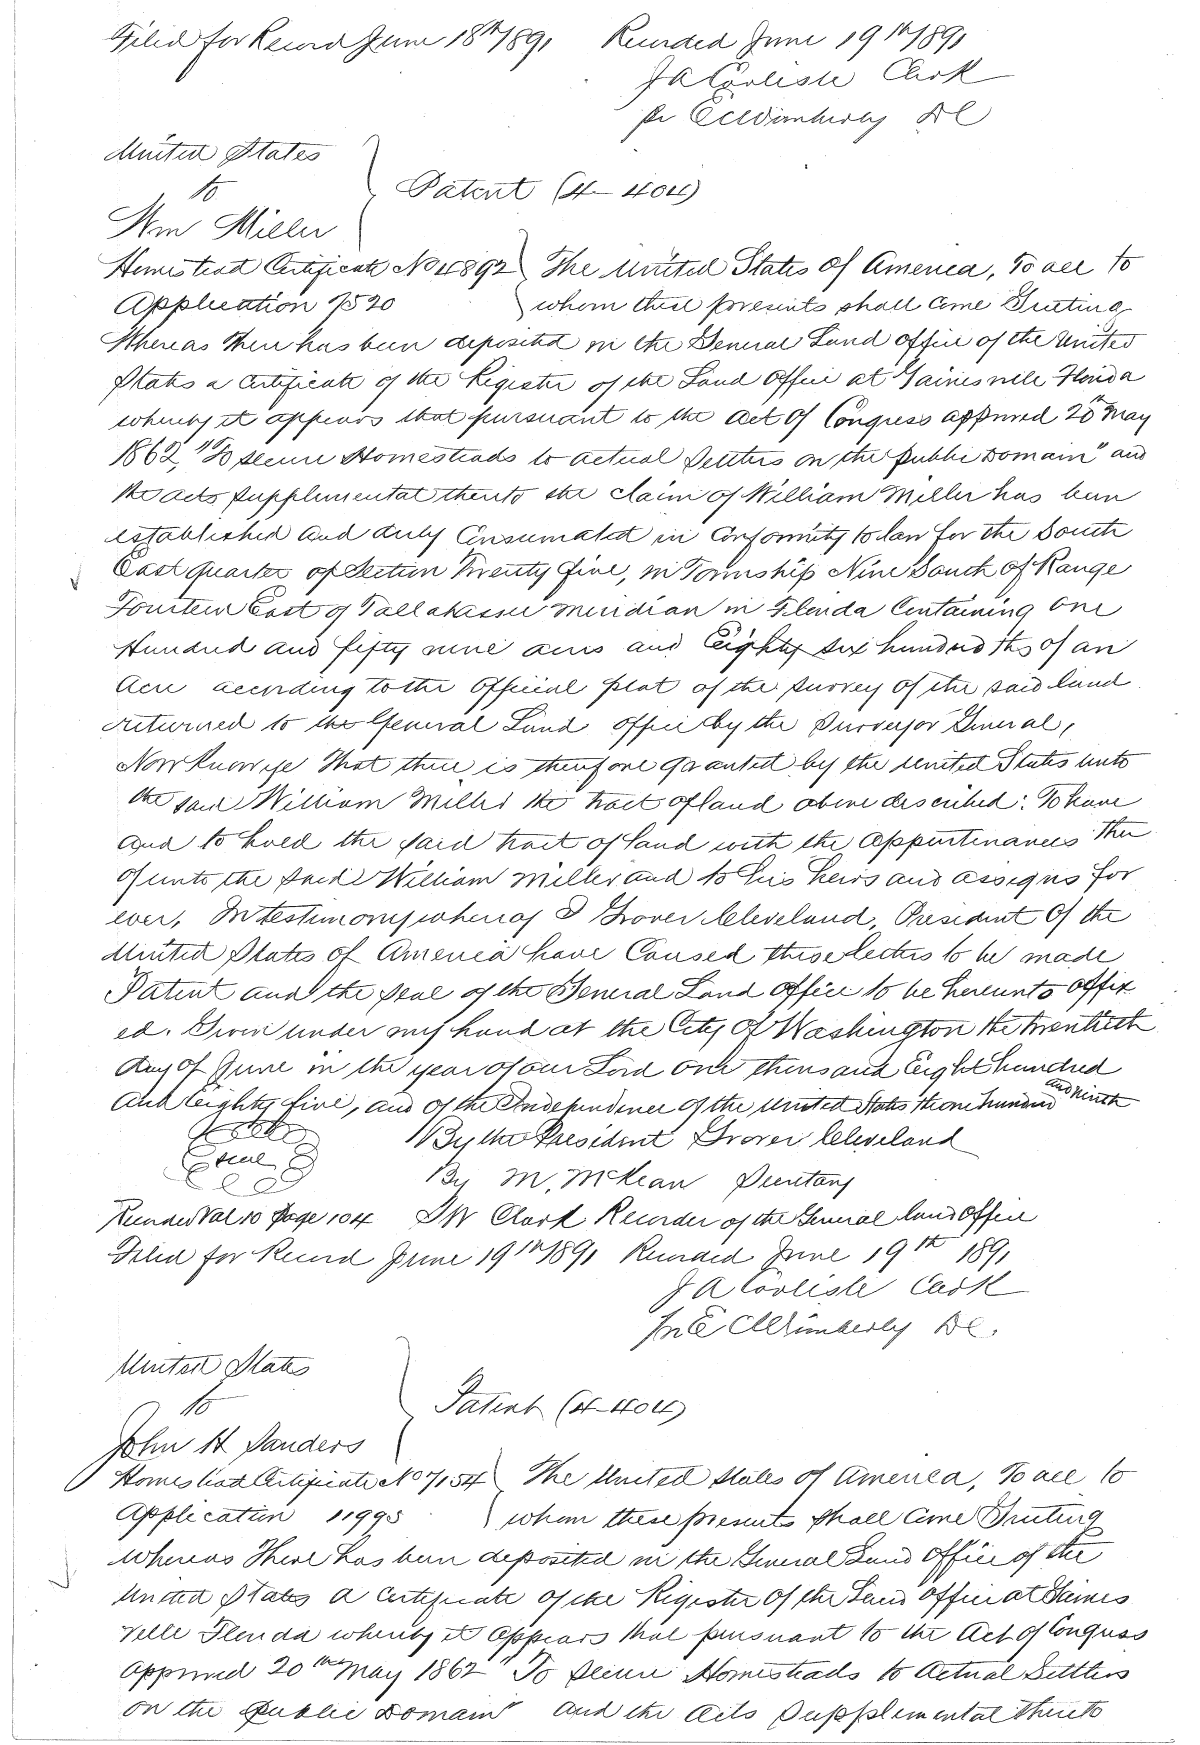 Filed for Record June 18th 1891 Recorded June 19th 1891
J A Carlisle Clerk
pr E C Wimberly DC
United States
to
Patent (4-404)
Wm Miller
Homestead Certificate No 4892 The United States of America, To all to
Application 7520 whom these presents shall Come Greeting
Whereas there has been deposited in the General Land office of the United
States a Certificate of the Register of the Land Office at Gainesville Florida
whereby it appears that pursuant to the Act of Congress approved 20th May
1862, "To secure Homesteads to actual Settlers on the public Domain" and
the acts supplemental thereto the claim of William Miller has been
established and duly Consumated in Conformity to law for the South
East quarter of Section Twenty five, in Township Nine South of Range
Fourteen East of Tallahassee Meridian in Florida Containing One
Hundred and fifty nine acres and Eighty six hundredths of an
Acre according to the Official plat of the survey of the said land
returned to the General Land office by the Surveyor General,
Now Know ye That there is therefore granted by the United States unto
the said William Miller the tract of land above described: To have
and to hold the said tract of land with the appurtenances there
of unto the said William Miller and to his heirs and assigns for
ever, In testimony whereof I Grover Cleveland, President Of the
United States of America have Caused these letters to be made
Patent and the seal of the General Land Office to be hereunto affix
ed. Given under my hand at the City of Washington the twentieth
day of June in the year of our Lord one thousand Eight hundred
and Eighty five, and of the Independence of the United States the one hundred and ninth
By the President Grover Cleveland
Seal
By M. McKean Secretary
Recorded Vol 10 Page 104 S W Clark Recorder of the General land Office
Filed for Record June 19th 1891 Recorded June 19th 1891
J A Carlisle Clerk
pr E C Wimberly DC.
United States
to
Patent (4-404)
John H Sanders
Homestead Certificate No 7154 The United States of America, To all to
Application 11995 whom these presents shall Come Greeting
Whereas There has been deposited in the General Land Office of the
United States a Certificate of the Register of the Land Office at Gaines
ville Florida whereby it appears that pursuant to the Act of Congress
approved 20th May 1862 "To secure Homesteads to Actual Settlers
on the public Domain" and the Acts Supplemental thereto